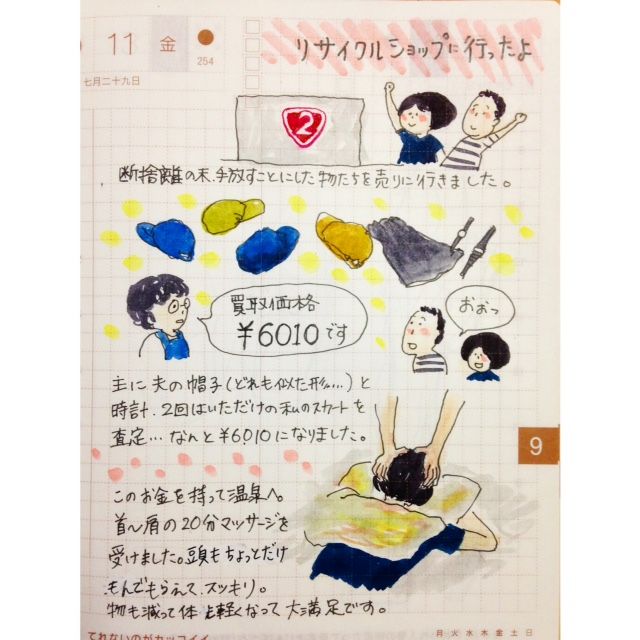 11 金
254
七月二十九日
リサイクルショップに行ったよ
2
断捨離の末、手放すことにした物たちを売りに行きました。
買取価格
¥6010です
おぉっ
主に夫の帽子(どれも似た形…)と
時計、2回はいただけの私のスカートを
査定…なんと¥6010になりました。
9
このお金を持って温泉へ。
首〜肩の20分マッサージを
受けました。頭もちょっとだけ
もんでもらえて、スッキリ。
物も減って体も軽くなって大満足です。
月 火 水 木 金 土 日
てれないのがカッコイイ